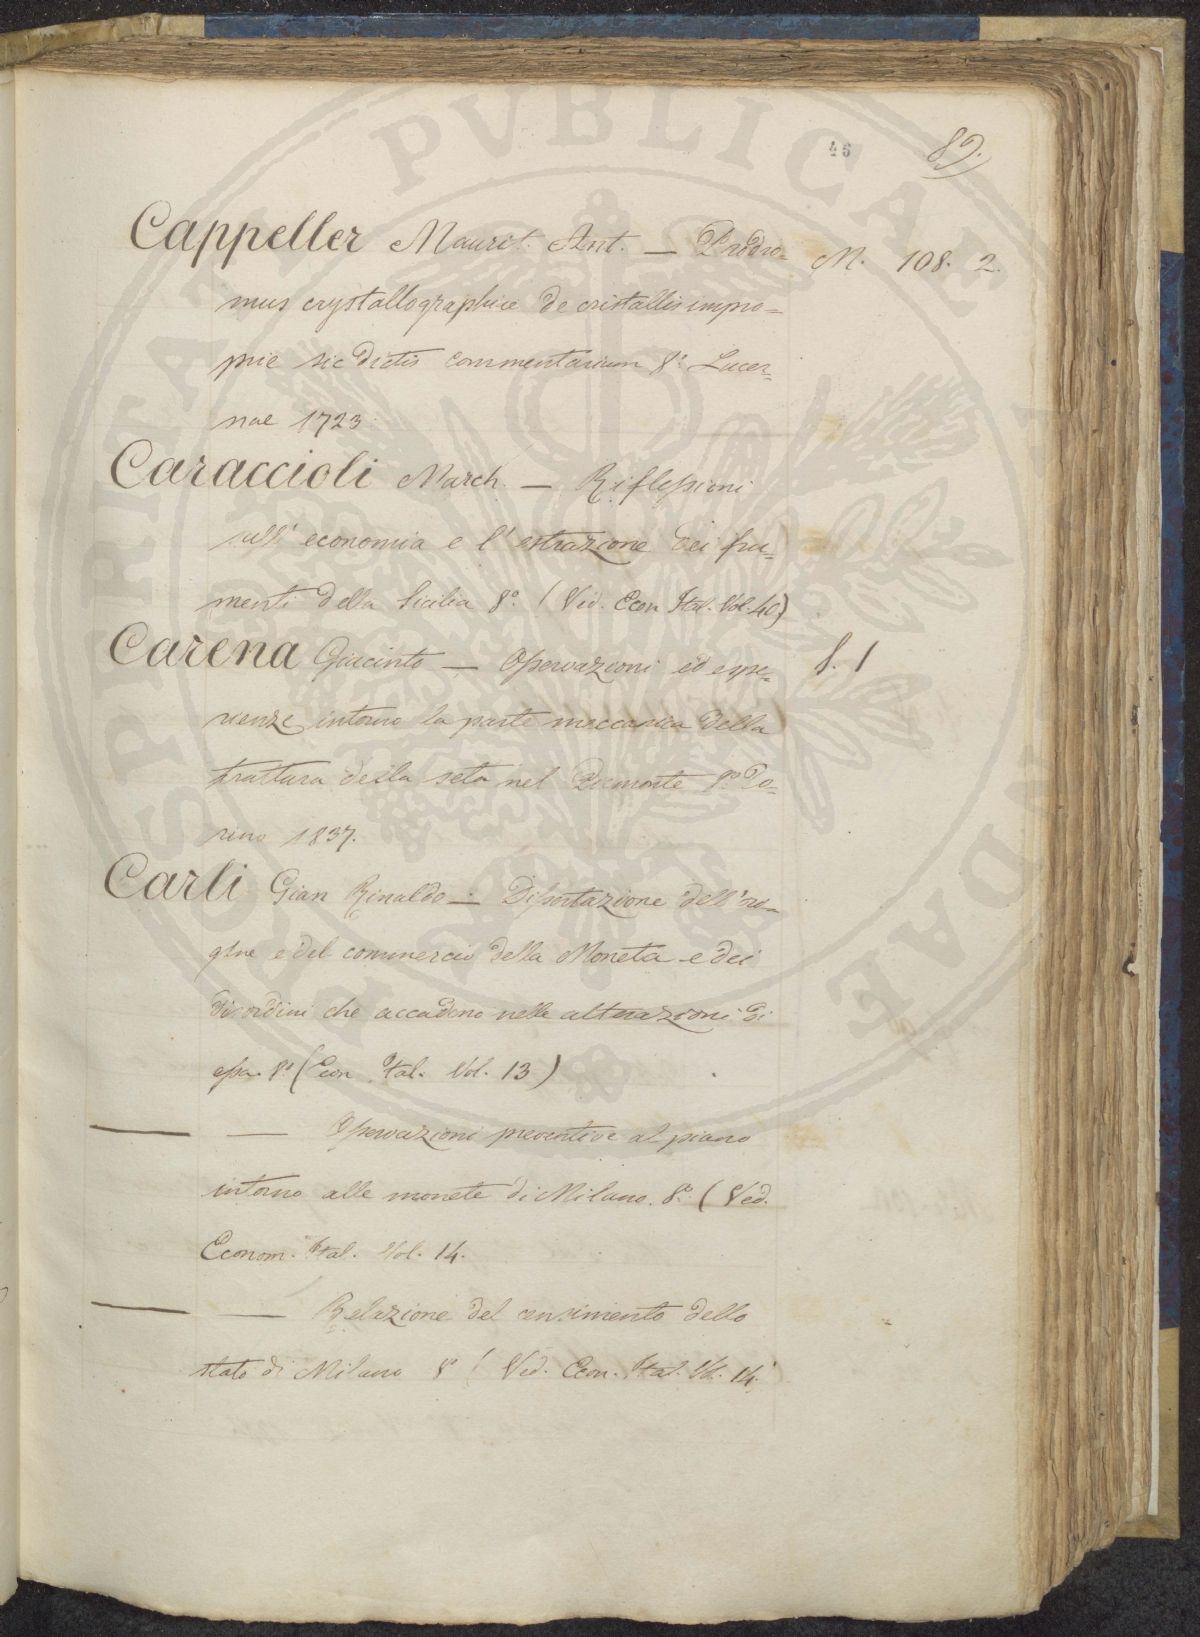 46 89.
Cappeller Maurit. Ant. — Prodro- M. 108. 2.
mus crystallographiæ de cristallis impro-
prie sic dictis commentarium 8.° Lucer-
nae 1723.
Caraccioli March. — Riflessioni
sull' economia e l'estrazione dei fru-
menti della Sicilia 8.° (Ved. Econ. Ital. Vol. 40)
Carena Giacinto — Osservazioni ed espe- f. 1
rienze intorno la parte meccanica della
trattura della seta nel Piemonte 8.° To-
rino 1837.
Carli Gian Rinaldo — Dissertazione dell'ori-
gine e del commercio della Moneta e dei
disordini che accadono nelle alterazioni di
essa. 8.° (Econ. Ital. Vol. 13)
— — Osservazioni preventive al piano
intorno alle monete di Milano. 8.° (Ved.
Econom. Ital. Vol. 14.
— — Relazione del censimento dello
stato di Milano 8° (Ved. Econ. Ital. Vol. 14.
PVBLICAE
PROSPERITATI